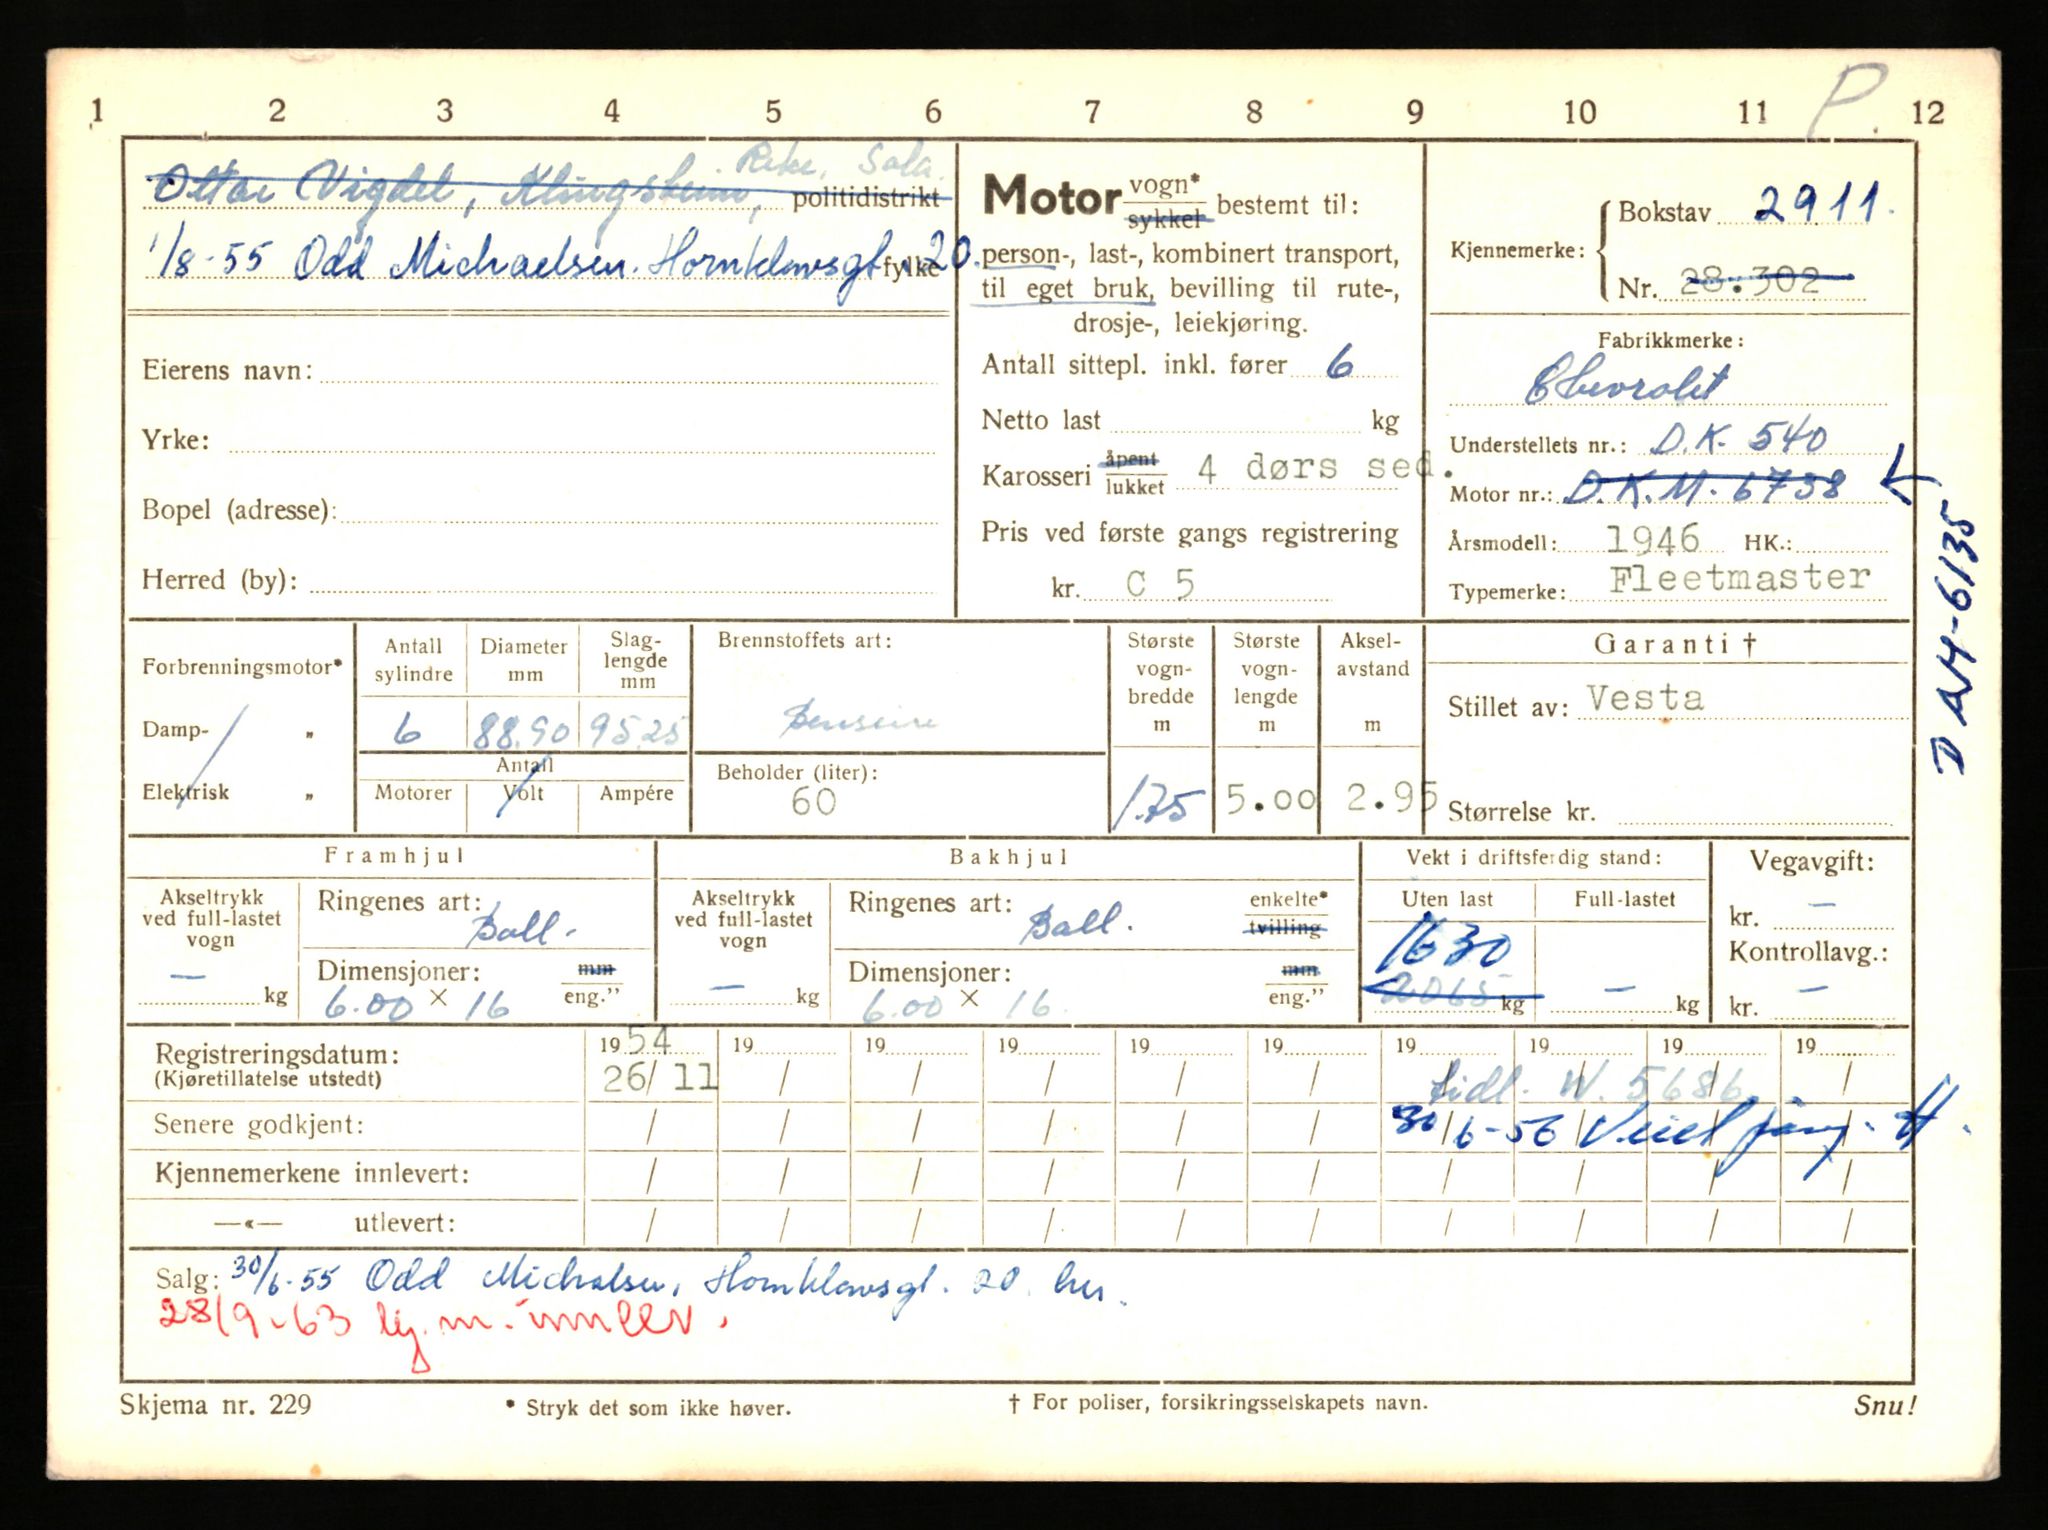 P.
1 2 3 4 5 6 7 8 9 10 11 12
Reke, Sola.
Ottar Vigdel, Klingsheim, politidistrikt
1/8-55 Odd Michaelsen. Hornklovsgt. 20. fylke
Eierens navn:
Yrke:
Bopel (adresse):
Herred (by):
Motor vogn* sykkel bestemt til:
person-, last-, kombinert transport,
til eget bruk, bevilling til rute-,
drosje-, leiekjøring.
Antall sittepl. inkl. fører 6
Netto last kg
Karosseri åpent lukket 4 dørs sed.
Pris ved første gangs registrering
kr. C 5
Kjennemerke: Bokstav 2911.
Nr. 28.302
Fabrikkmerke:
Chevrolet
Understellets nr.: D.K. 540
Motor nr.: D.K.M. 6738
Årsmodell: 1946 HK.:
Typemerke: Fleetmaster
DAM-6135
Forbrenningsmotor*
Damp- „
Elektrisk „
Antall sylindre
Diameter mm
Slag-lengde mm
6 88.90 95.25
Antall
Motorer Volt Ampére
Brennstoffets art:
Benseine
Beholder (liter):
60
Største vogn-bredde m
1.75
Største vogn-lengde m
5.00
Aksel-avstand m
2.95
Garanti †
Stillet av: Vesta
Størrelse kr.
Framhjul
Akseltrykk ved full-lastet vogn
— kg
Ringenes art: Ball.
Dimensjoner: mm
6.00 × 16 eng."
Bakhjul
Akseltrykk ved full-lastet vogn
— kg
Ringenes art: Ball. enkelte* tvilling
Dimensjoner: mm
6.00 × 16. eng."
Vekt i driftsferdig stand:
Uten last Full-lastet
1630
2065 kg — kg
Vegavgift:
kr. —
Kontrollavg.:
kr. —
Registreringsdatum: 1954 19 19 19 19 19 19 19 19 19
(Kjøretillatelse utstedt) 26/11 / / / / /
tidl. W. 5686
Senere godkjent: / / / / / / 30/6-56
Kjennemerkene innlevert: / / / / / / / / / /
—«— utlevert: / / / / / / / / / /
Salg: 30/6-55 Odd Michalsen, Hornklovsgt. 20. her.
28/9-63 kj.m. innlev.
Skjema nr. 229
* Stryk det som ikke høver.
† For poliser, forsikringsselskapets navn.
Snu!